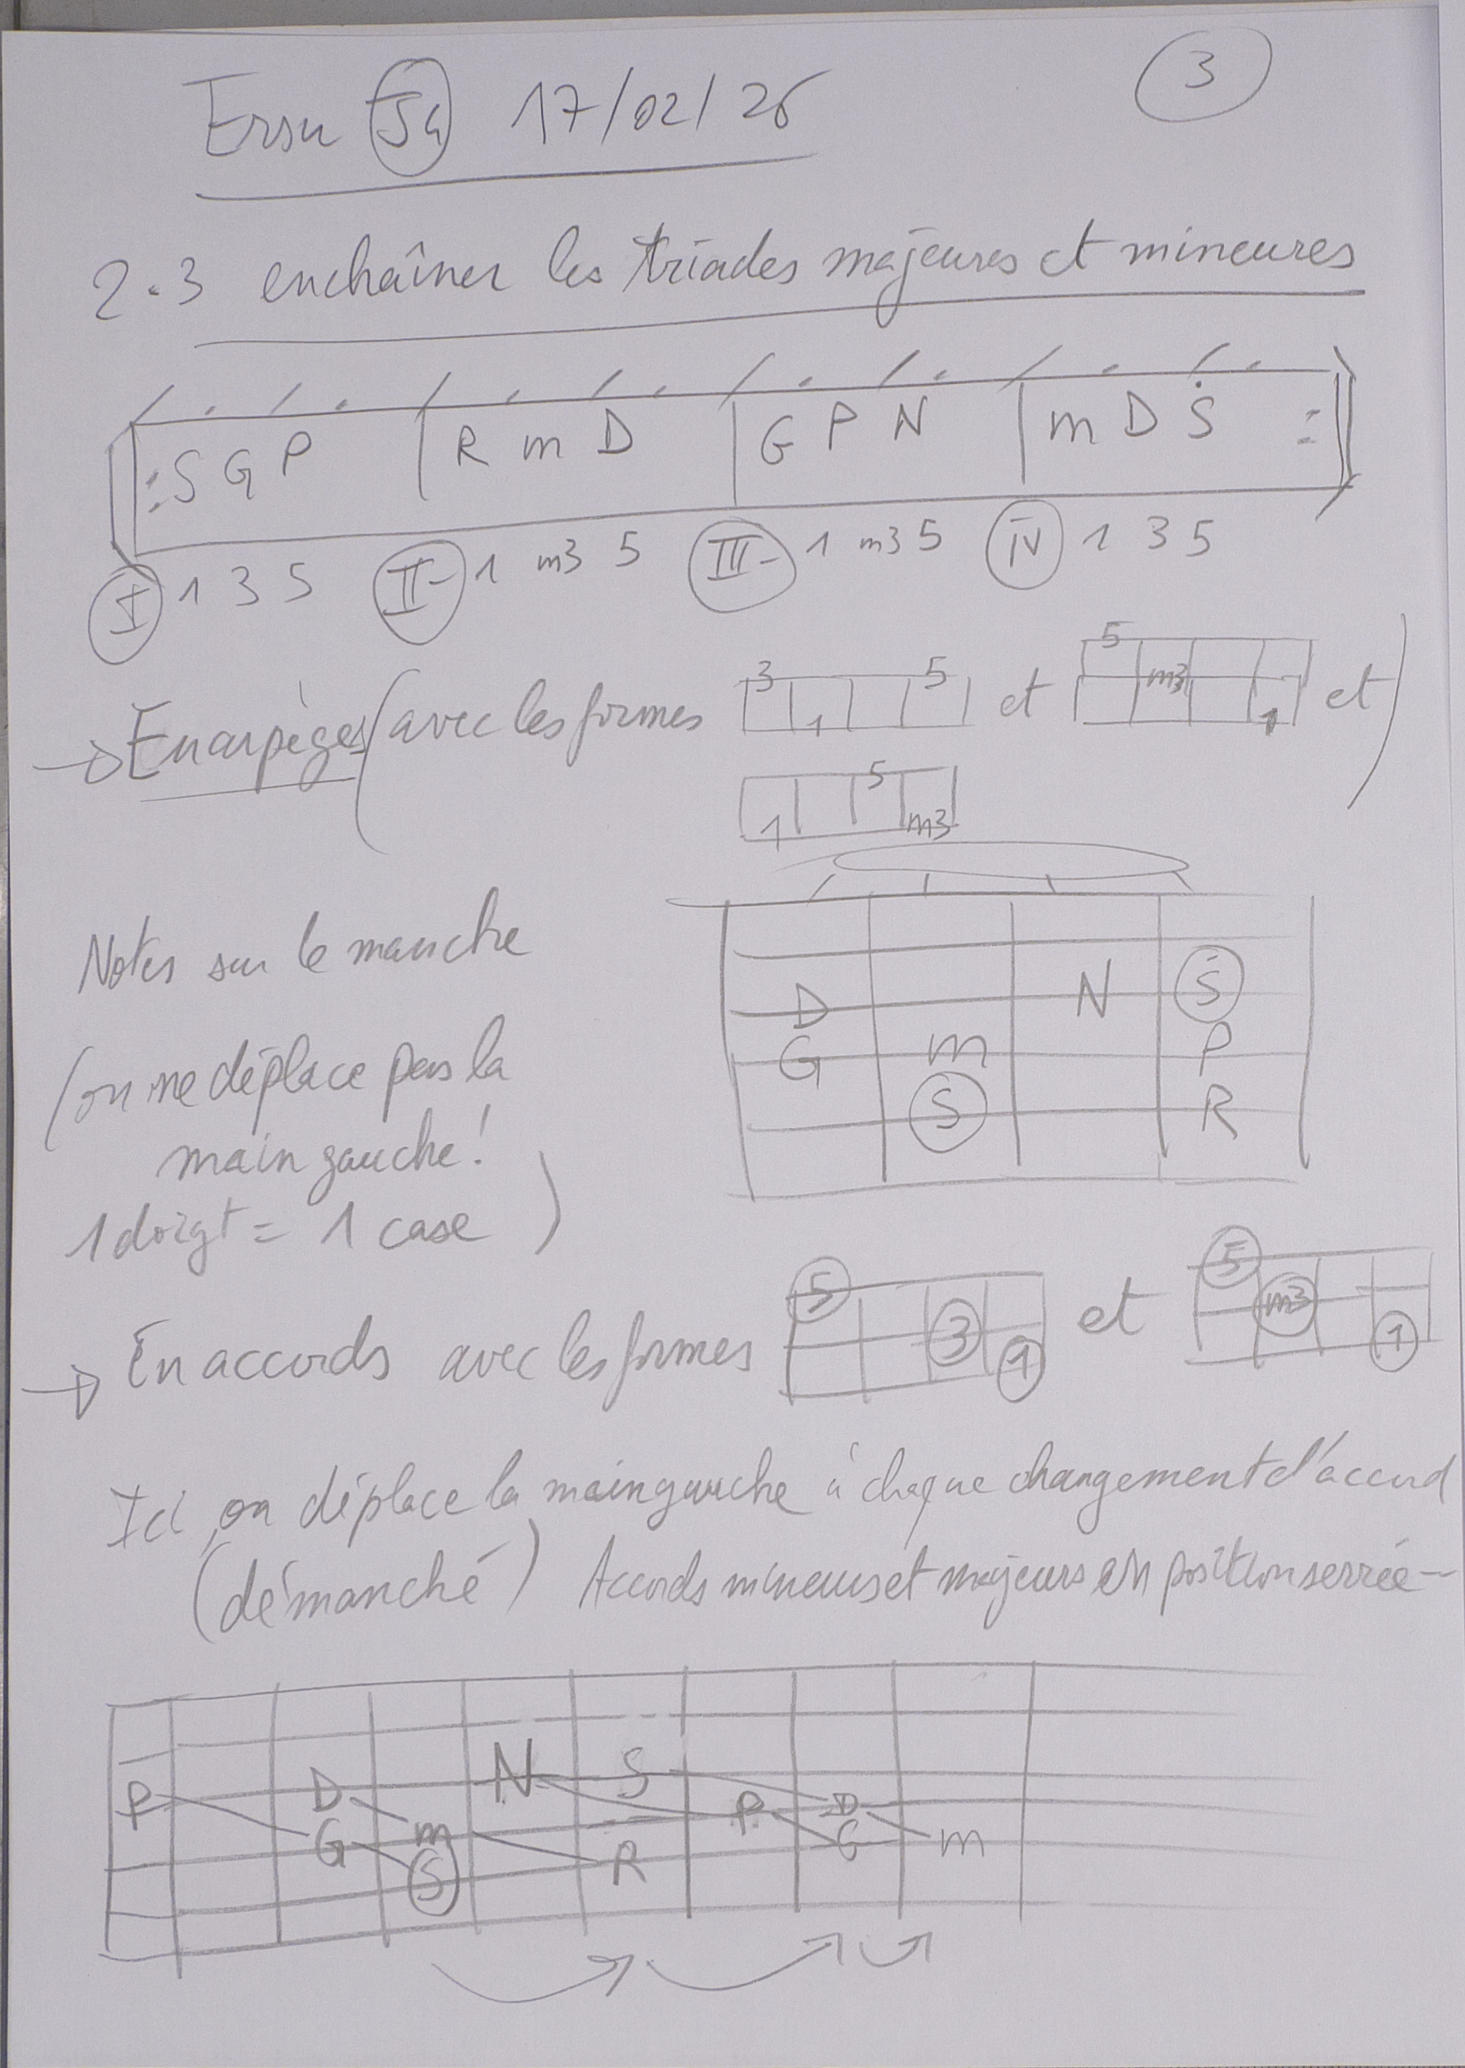 3
Ersu 54 17/02/26
2.3 enchaîner les triades majeures et mineures
:S G P | R m D | G P N | m D Ṡ :
I 1 3 5 II- 1 m3 5 III- 1 m3 5 IV 1 3 5
→ En arpèges (avec les formes 3 1 5 et 5 m3 1 et)
1 5 m3
Notes sur le manche
(on ne déplace pas la
main gauche!
1 doigt = 1 case )
N Ṡ
D
G m P
S R
→ En accords avec les formes 5 3 1 et 5 m3 1
Ici, on déplace la main gauche à chaque changement d'accord
(démanché) Accords mineurs et majeurs en position serrée -
N S
P D P D
G m R G m
S